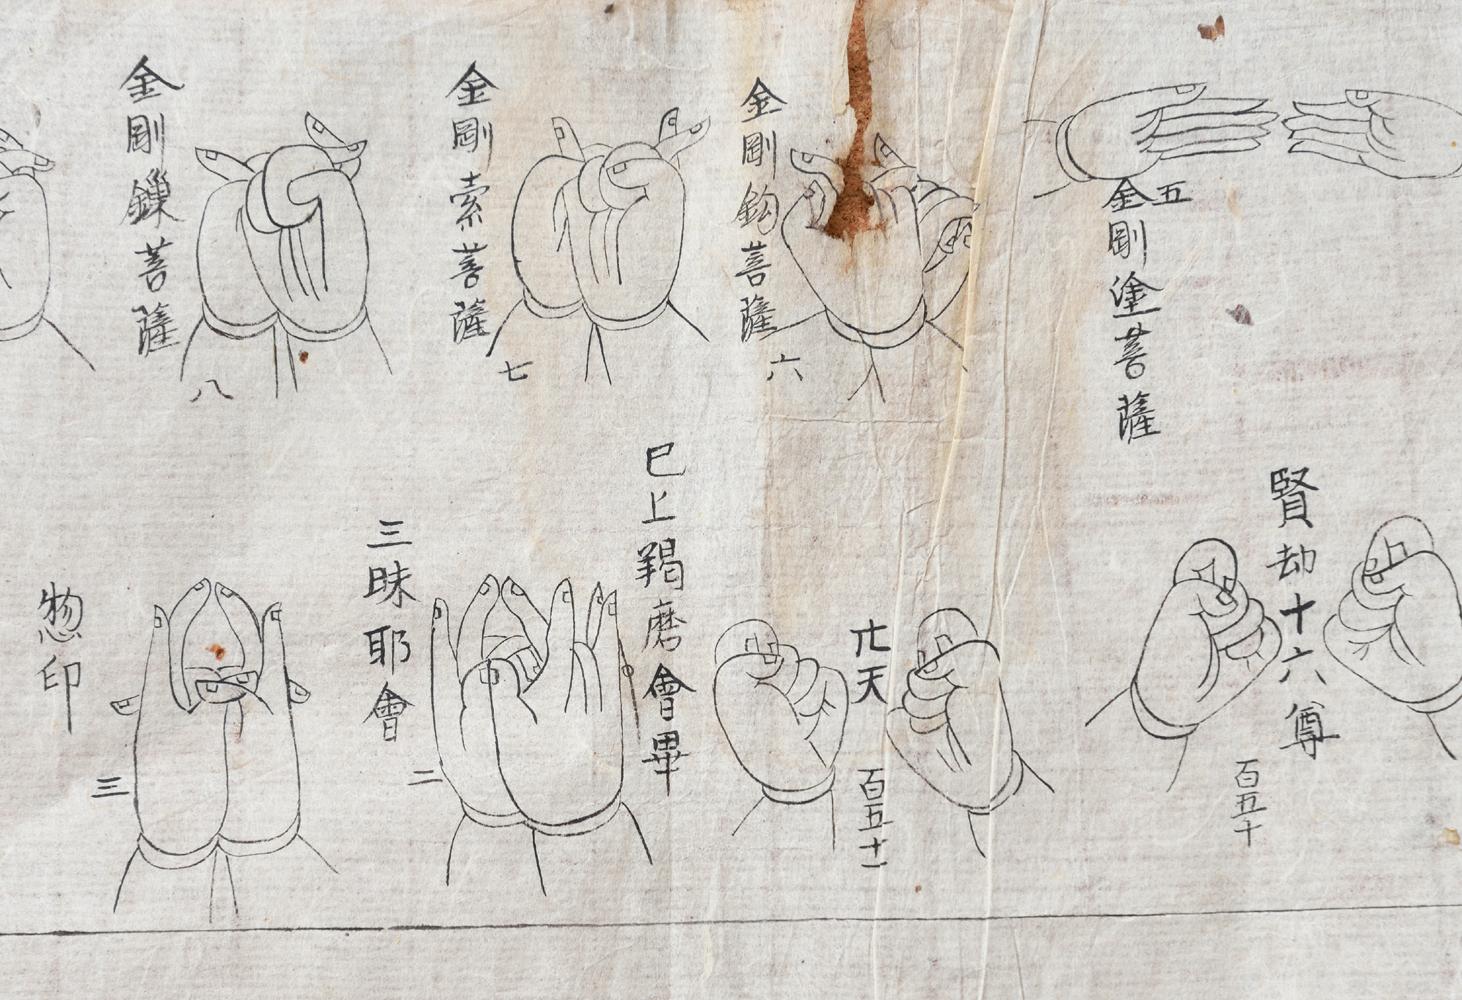 金剛塗菩薩
五
金剛鈎菩薩
六
金剛索菩薩
七
金剛鏁菩薩
八
賢劫十六尊
百五十
廾天
百五十一
巳上羯磨會畢
三昧耶會
二
惣印
三